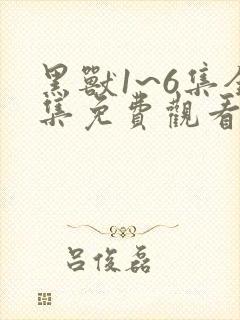 黑獸1~6集全
集免費觀看
吕俊磊